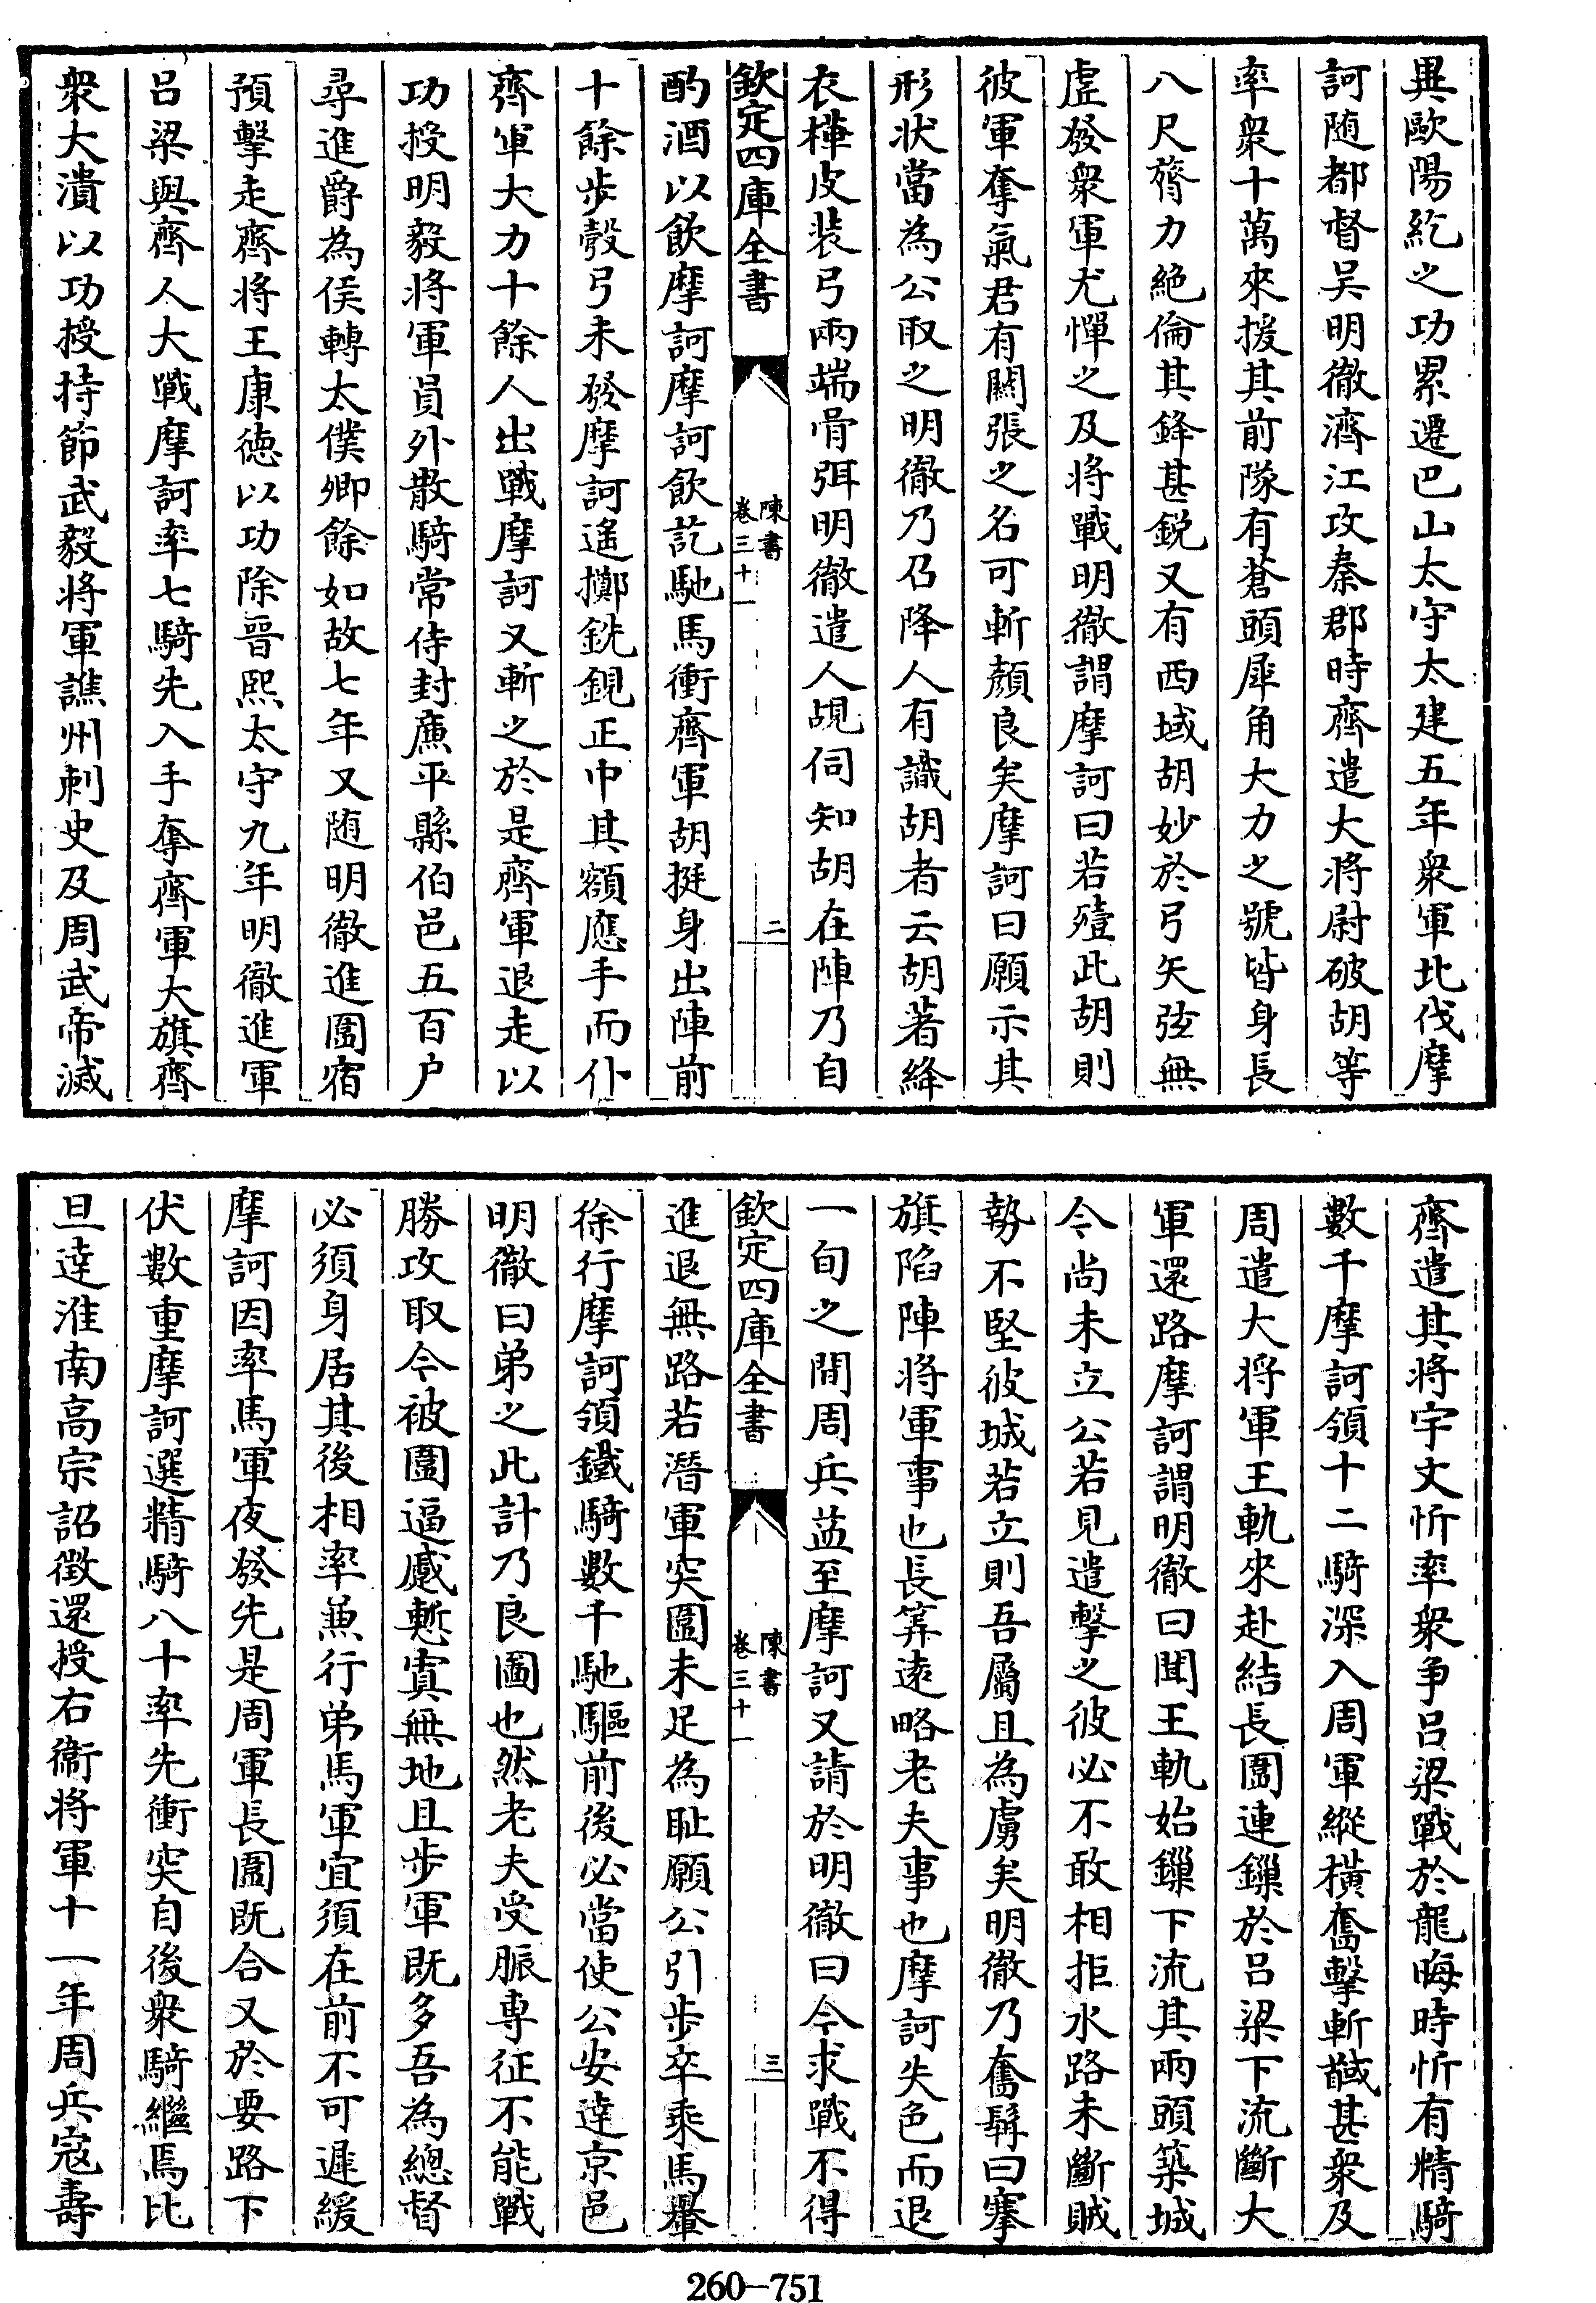 異歐陽紇之功累遷巴山太守太建五年衆軍北伐摩
訶随都督吳明徹濟江攻秦郡時齊遣大將尉破胡等
率衆十萬來援其前隊有蒼頭犀角大力之號皆身長
八尺膂力絶倫其鋒甚銳又有西域胡妙於弓矢弦無
虛發衆軍尤憚之及將戰明徹謂摩訶曰若殪此胡則
彼軍奪氣君有闗張之名可斬顔良矣摩訶曰願示其
形状當為公取之明徹乃召降人有識胡者云胡著絳
衣樺皮裝弓兩端骨弭明徹遣人覘伺知胡在陣乃自
欽定四庫全書
陳書
卷三十一
二
酌酒以飲摩訶摩訶飲訖馳馬衝齊軍胡挺身出陣前
十餘步彀弓未發摩訶遙擲銑鋧正中其額應手而仆
齊軍大力十餘人出戰摩訶又斬之於是齊軍退走以
功授明毅將軍員外散騎常侍封廉平縣伯邑五百户
尋進爵為侯轉太僕卿餘如故七年又随明徹進圍宿
預擊走齊將王康徳以功除晉熙太守九年明徹進軍
吕梁與齊人大戰摩訶率七騎先入手奪齊軍大旗齊
衆大潰以功授持節武毅将軍譙州刺史及周武帝滅
齊遣其將宇文忻率衆争吕梁戰於龍晦時忻有精騎
數千摩訶領十二騎深入周軍縱横奮擊斬馘甚衆及
周遣大將軍王軌來赴結長圍連鏁於吕梁下流斷大
軍還路摩訶謂明徹曰聞王軌始鏁下流其兩頭築城
今尚未立公若見遣擊之彼必不敢相拒水路未斷賊
勢不堅彼城若立則吾屬且為虜矣明徹乃奮髯曰搴
旗陷陣將軍事也長筭逺略老夫事也摩訶失色而退
一旬之間周兵益至摩訶又請於明徹曰今求戰不得
欽定四庫全書
陳書
卷三十一
三
進退無路若潛軍突圍未足為耻願公引步卒乘馬轝
徐行摩訶領鐵騎數千馳驅前後必當使公安達京邑
明徹曰弟之此計乃良圖也然老夫受脤専征不能戰
勝攻取今被圍逼蹙慙寘無地且步軍既多吾為總督
必須身居其後相率兼行弟馬軍宜須在前不可遲緩
摩訶因率馬軍夜發先是周軍長圍既合又於要路下
伏數重摩訶選精騎八十率先衝突自後衆騎繼焉比
旦達淮南髙宗詔徴還授右衞將軍十一年周兵寇壽
260-751